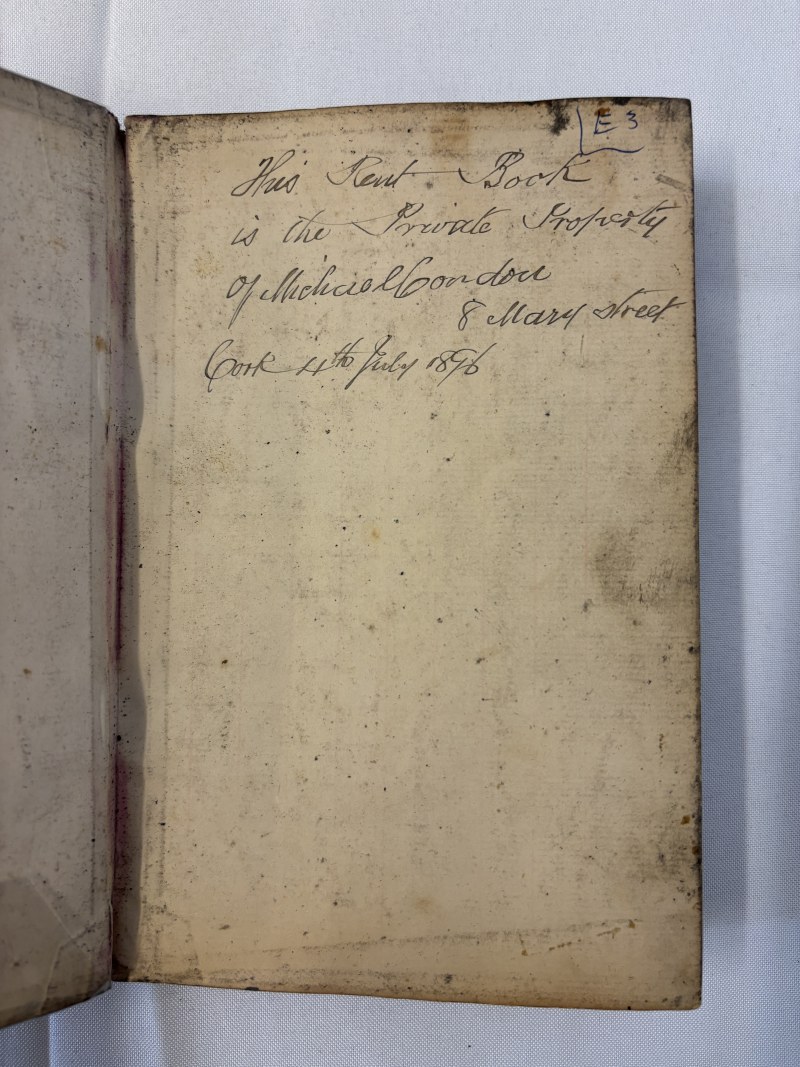 E 3
This Rent Book
is the Private Property
Of Michael Condon
8 Mary Street
Cork 4th July 1896